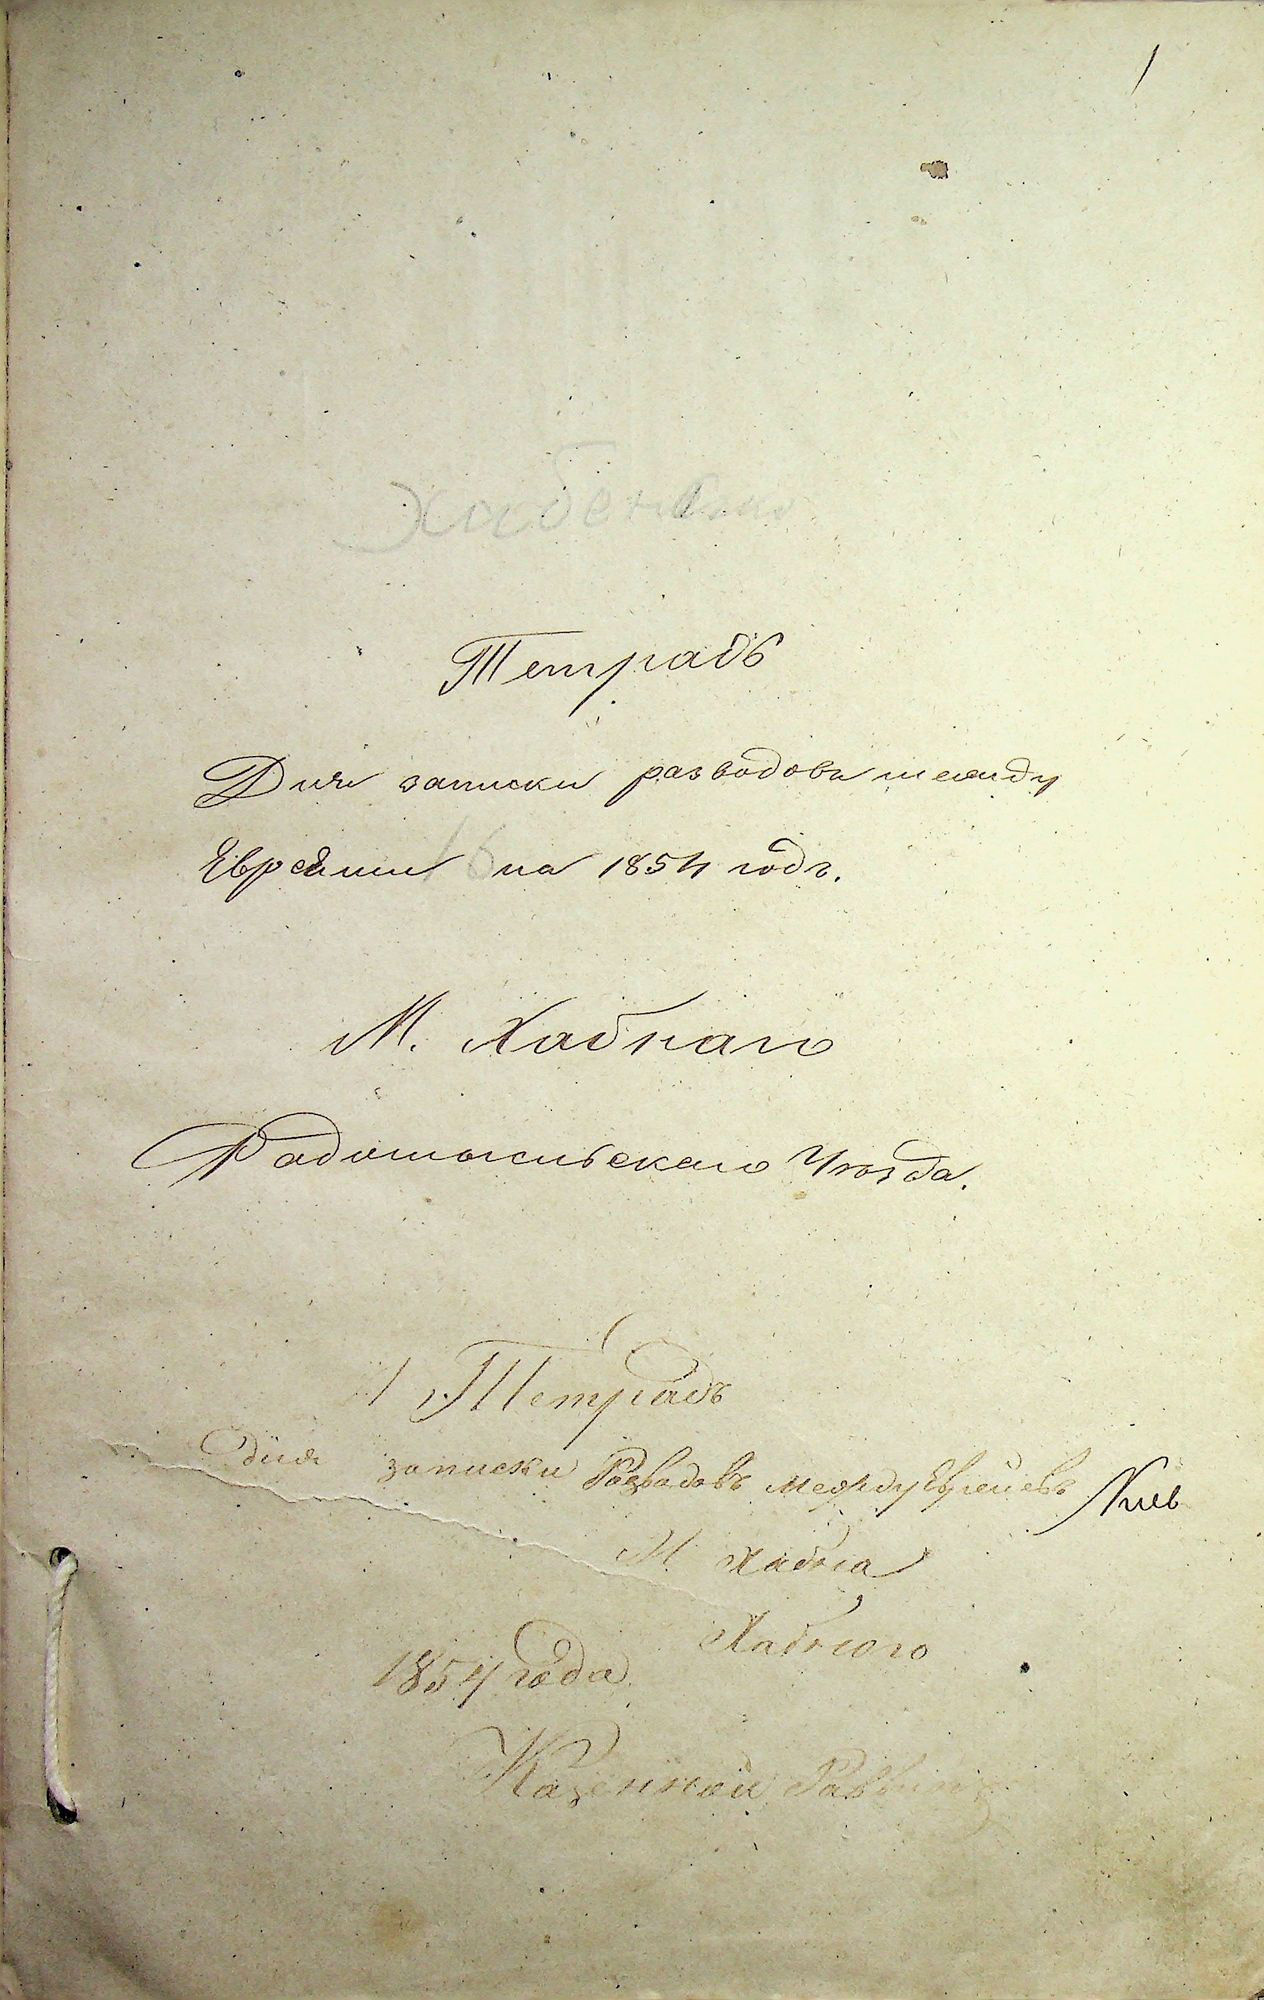 1
Тетрадь
Для записки разводовъ между
Евреями на 1854 годъ.
М. Хабнаго
Радомысльскаго Уѣзда.
Тетрадъ
для записки Разводовъ между Евреевъ
М. Хабна
Хабного
1854 года
Казенной Раввинъ